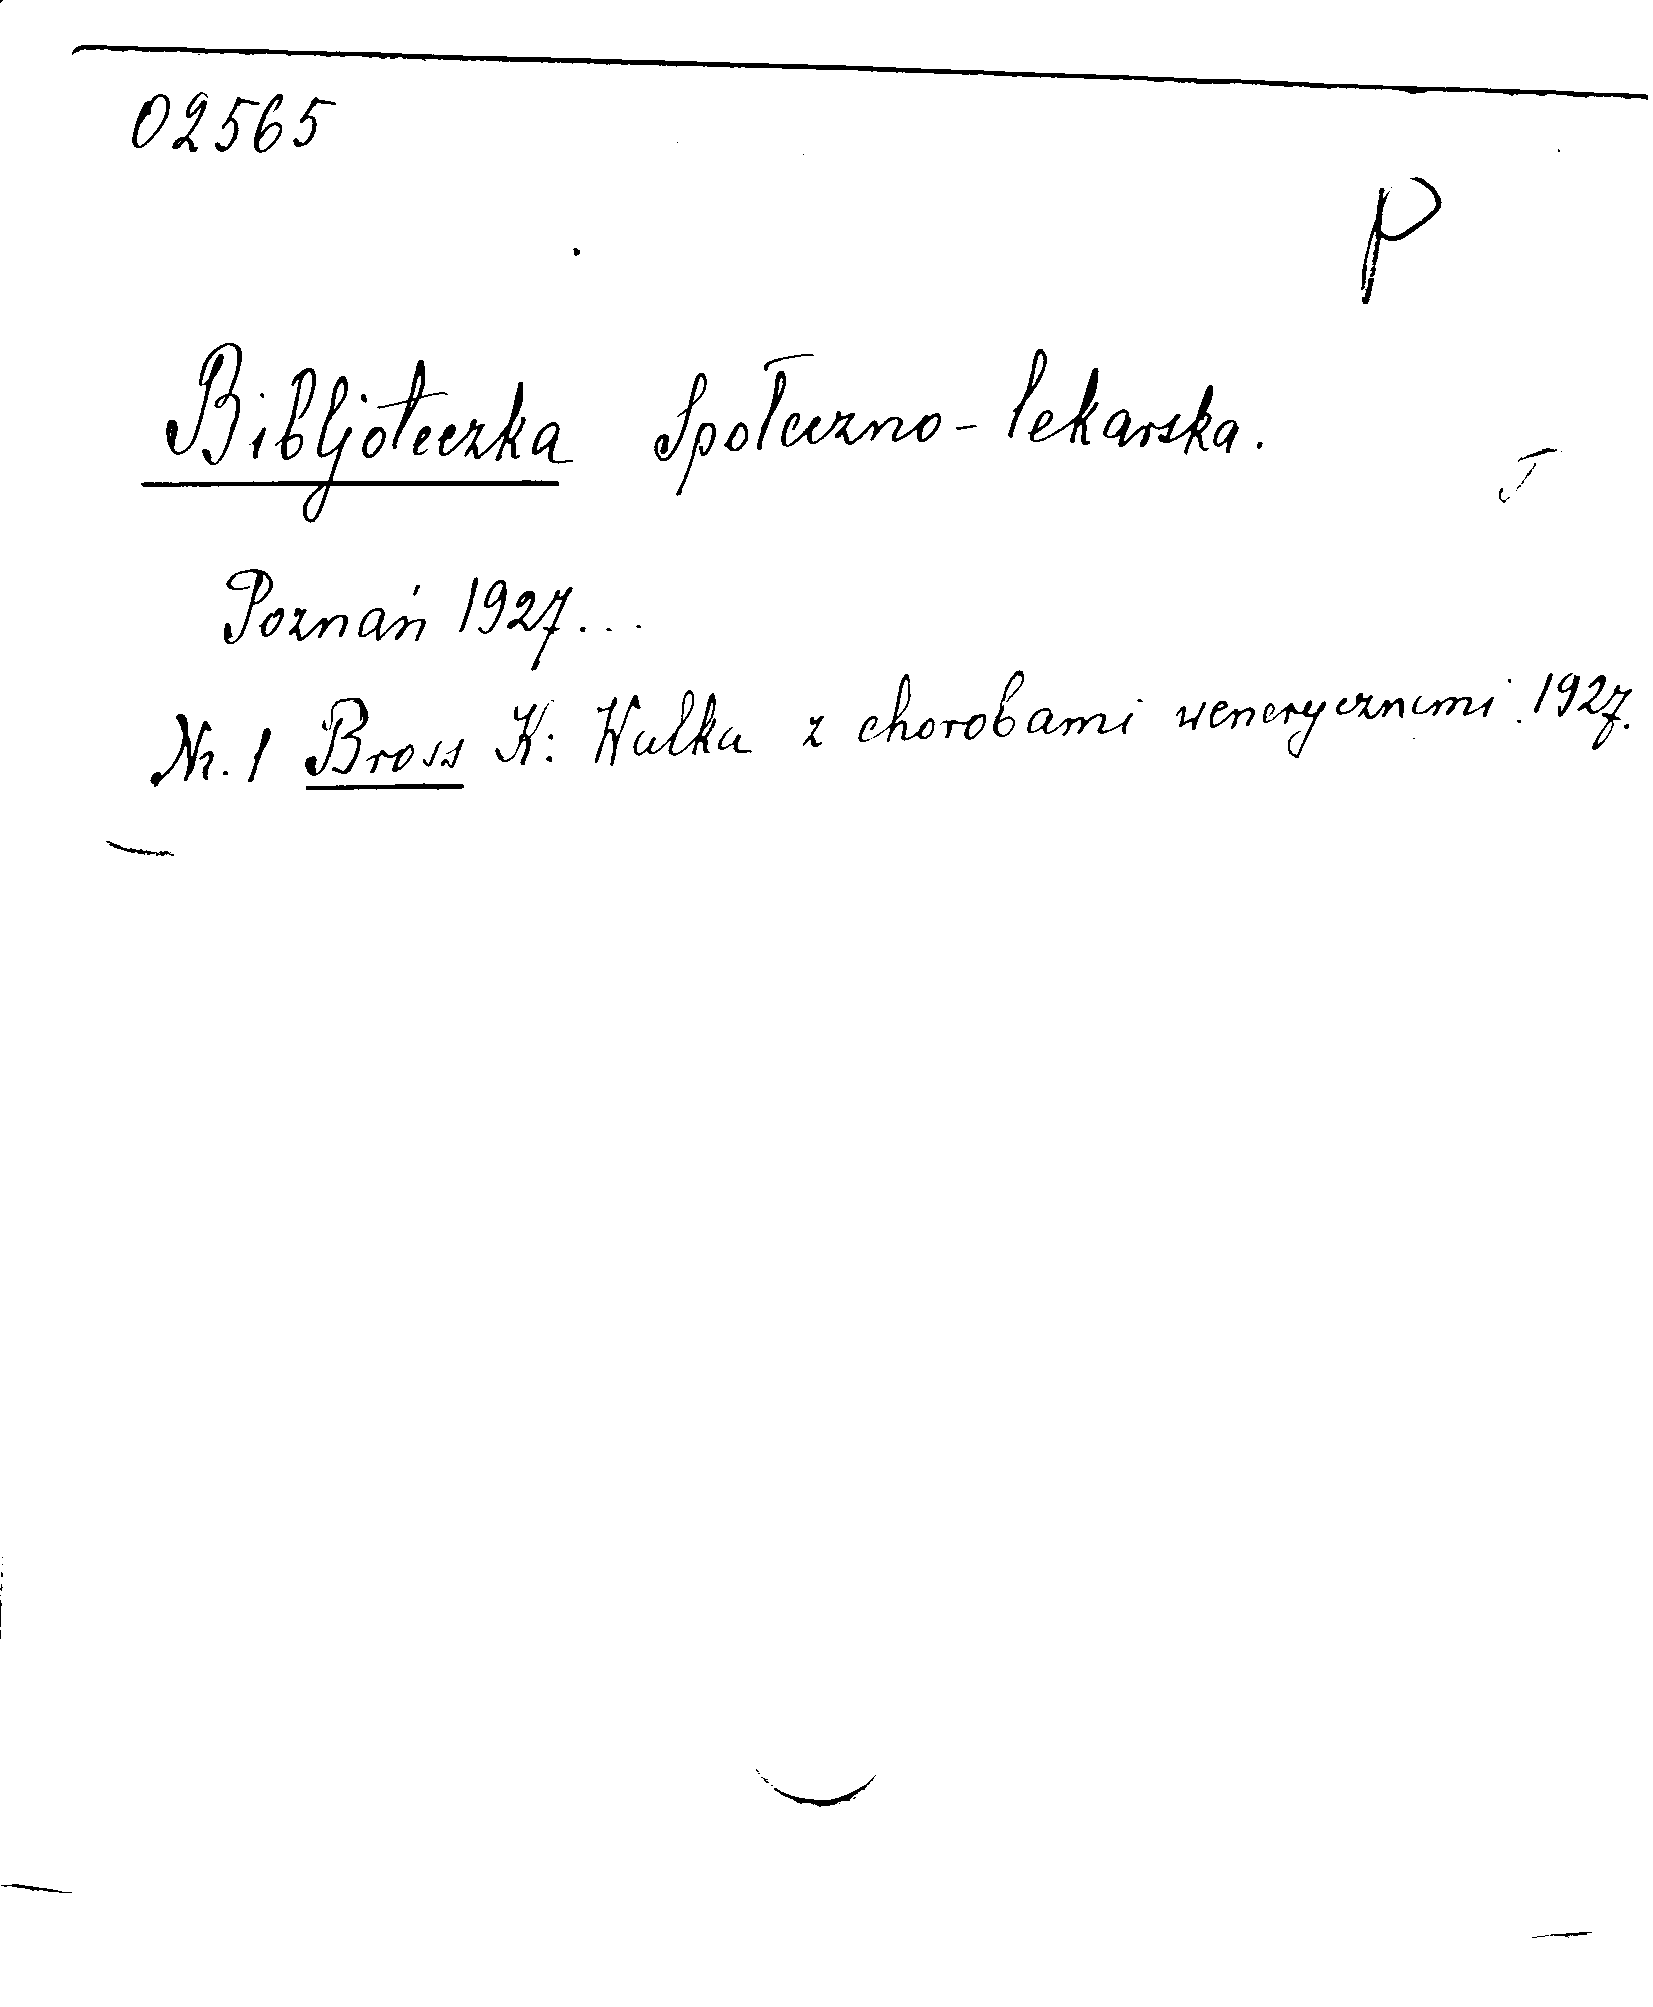 02565
P
Bibljoteczka Społeczno-lekarska.
J
Poznań 1927...
Nr. 1 Bross K: Walka z chorobami wenerycznemi. 1927.